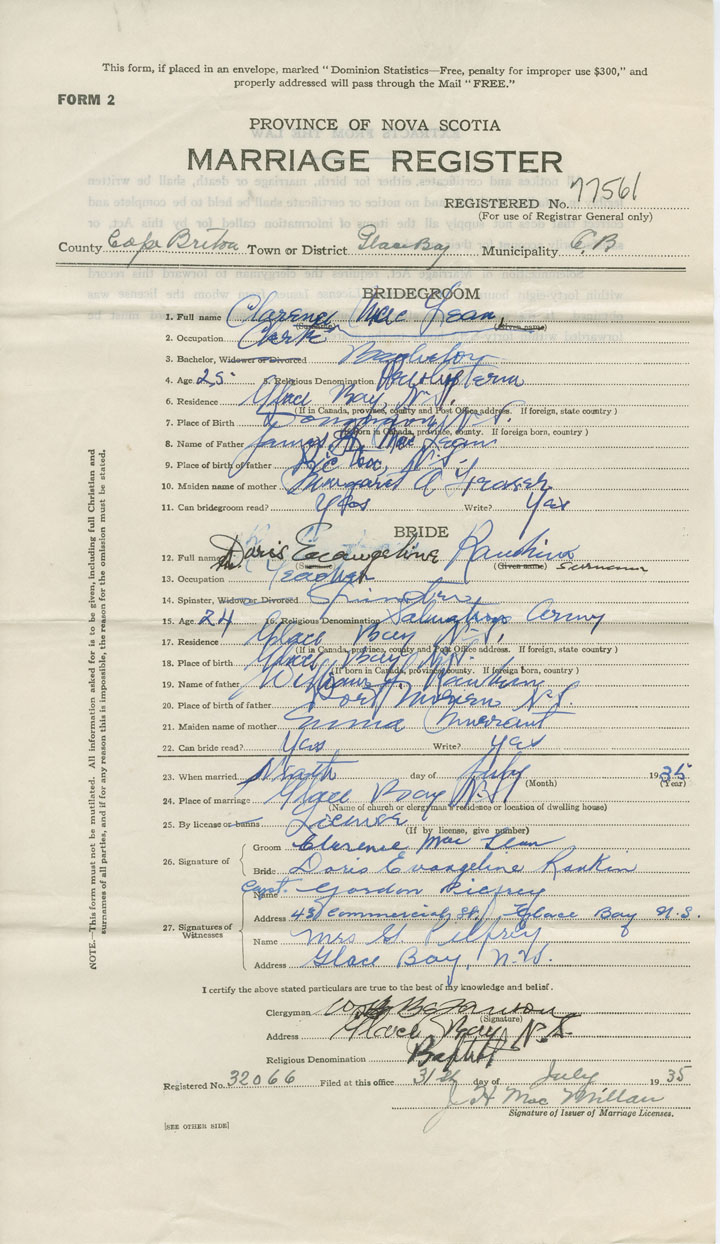 This form, if placed in an envelope, marked "Dominion Statistics—Free, penalty for improper use $300," and
properly addressed will pass through the Mail "FREE."
FORM 2
PROVINCE OF NOVA SCOTIA
MARRIAGE REGISTER
REGISTERED No. 77561
(For use of Registrar General only)
County Cape Briton Town or District Glace Bay Municipality C.B
BRIDEGROOM
1. Full name Clarence Mac Lean
(Surname) (Given name)
2. Occupation Clerk
3. Bachelor, Widower or Divorced Bachelor
4. Age 25 5. Religious Denomination
6. Residence Glace Bay, N.S.
(If in Canada, province, county and Post Office address. If foreign, state country)
7. Place of Birth N.S.
(If born in Canada, province, county. If foreign born, country)
8. Name of Father James Mac Lean
9. Place of birth of father N.S.
10. Maiden name of mother Margaret A Fraser
11. Can bridegroom read? Yes Write? Yes
BRIDE
12. Full name Doris Evangeline Rankin
(Surname) (Given name) Surname
13. Occupation Teacher
14. Spinster, Widow or Divorced Spinster
15. Age 24 16. Religious Denomination Salvation Army
17. Residence Glace Bay N.S.
(If in Canada, province, county and Post Office address. If foreign, state country)
18. Place of birth Glace Bay N.S.
(If born in Canada, province, county. If foreign born, country)
19. Name of father William Rankin
20. Place of birth of father Port Morien N.S.
21. Maiden name of mother Emma
22. Can bride read? Yes Write? Yes
23. When married day of July 1935
(Month) (Year)
24. Place of marriage Glace Bay N.S.
(Name of church or clergyman's residence or location of dwelling house)
25. By license or banns License
(If by license, give number)
26. Signature of
Groom Clarence Mac Lean
Bride Doris Evangeline Rankin
27. Signatures of Witnesses
Name Capt. Gordon Pilfrey
Address 48 Commercial St. Glace Bay N.S.
Name Mrs G. Pilfrey
Address Glace Bay, N.S.
I certify the above stated particulars are true to the best of my knowledge and belief.
Clergyman
(Signature)
Address Glace Bay, N.S.
Religious Denomination Baptist
Registered No. 32066 Filed at this office 31st day of July 1935
J H Mac Millan
Signature of Issuer of Marriage Licenses.
[SEE OTHER SIDE]
NOTE.—This form must not be mutilated. All information asked for is to be given, including full Christian and
surnames of all parties, and if for any reason this is impossible, the reason for the omission must be stated.